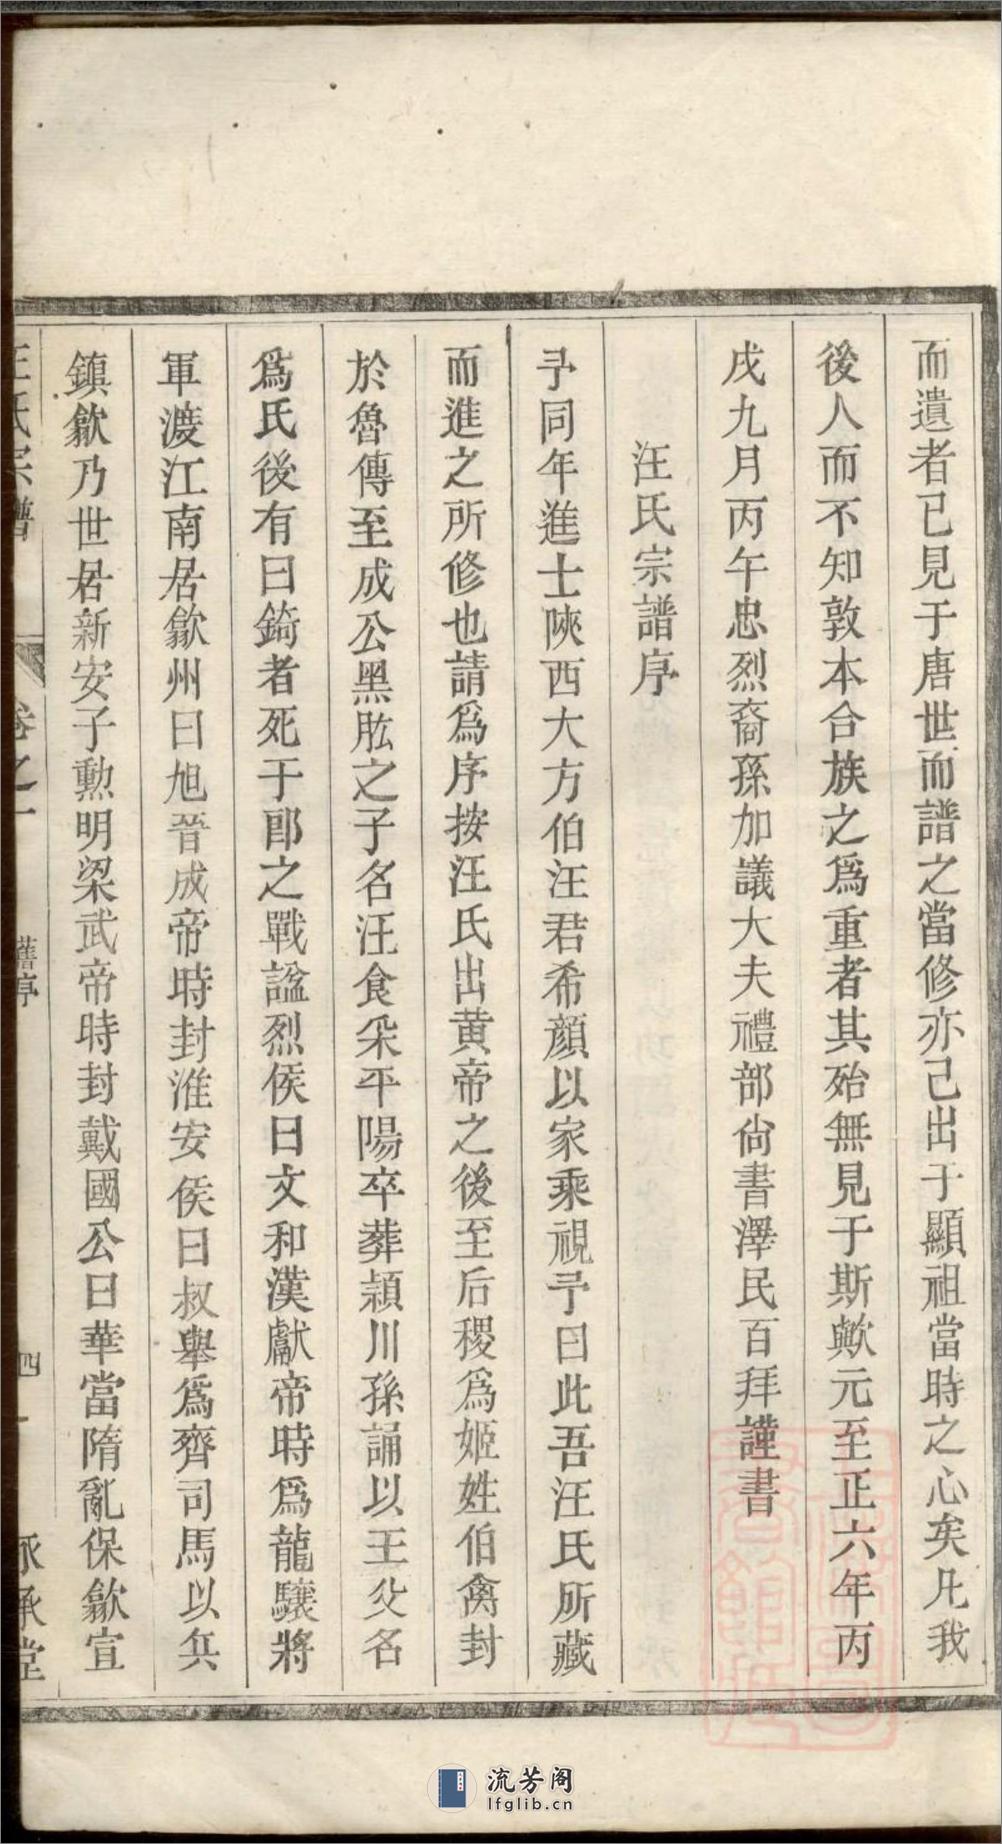 而遺者已見于唐世而譜之當修亦已出于顯祖當時之心矣凡我
後人而不知敦本合族之爲重者其殆無見于斯歟元至正六年丙
戌九月丙午忠烈裔孫加議大夫禮部尙書澤民百拜謹書
汪氏宗譜序
予同年進士陝西大方伯汪君希顏以家乘視予曰此吾汪氏所藏
而進之所修也請爲序按汪氏出黃帝之後至后稷爲姬姓伯禽封
於魯傳至成公黑肱之子名汪食采平陽卒葬潁川孫誦以王父名
爲氏後有曰錡者死于郎之戰諡烈侯曰文和漢獻帝時爲龍驤將
軍渡江南居歙州曰旭晉成帝時封淮安侯曰叔舉爲齊司馬以兵
鎮歙乃世居新安子勲明梁武帝時封戴國公曰華當隋亂保歙宣
汪氏宗譜 卷之一 舊序 四 承堂
流芳阁
lfglib.cn